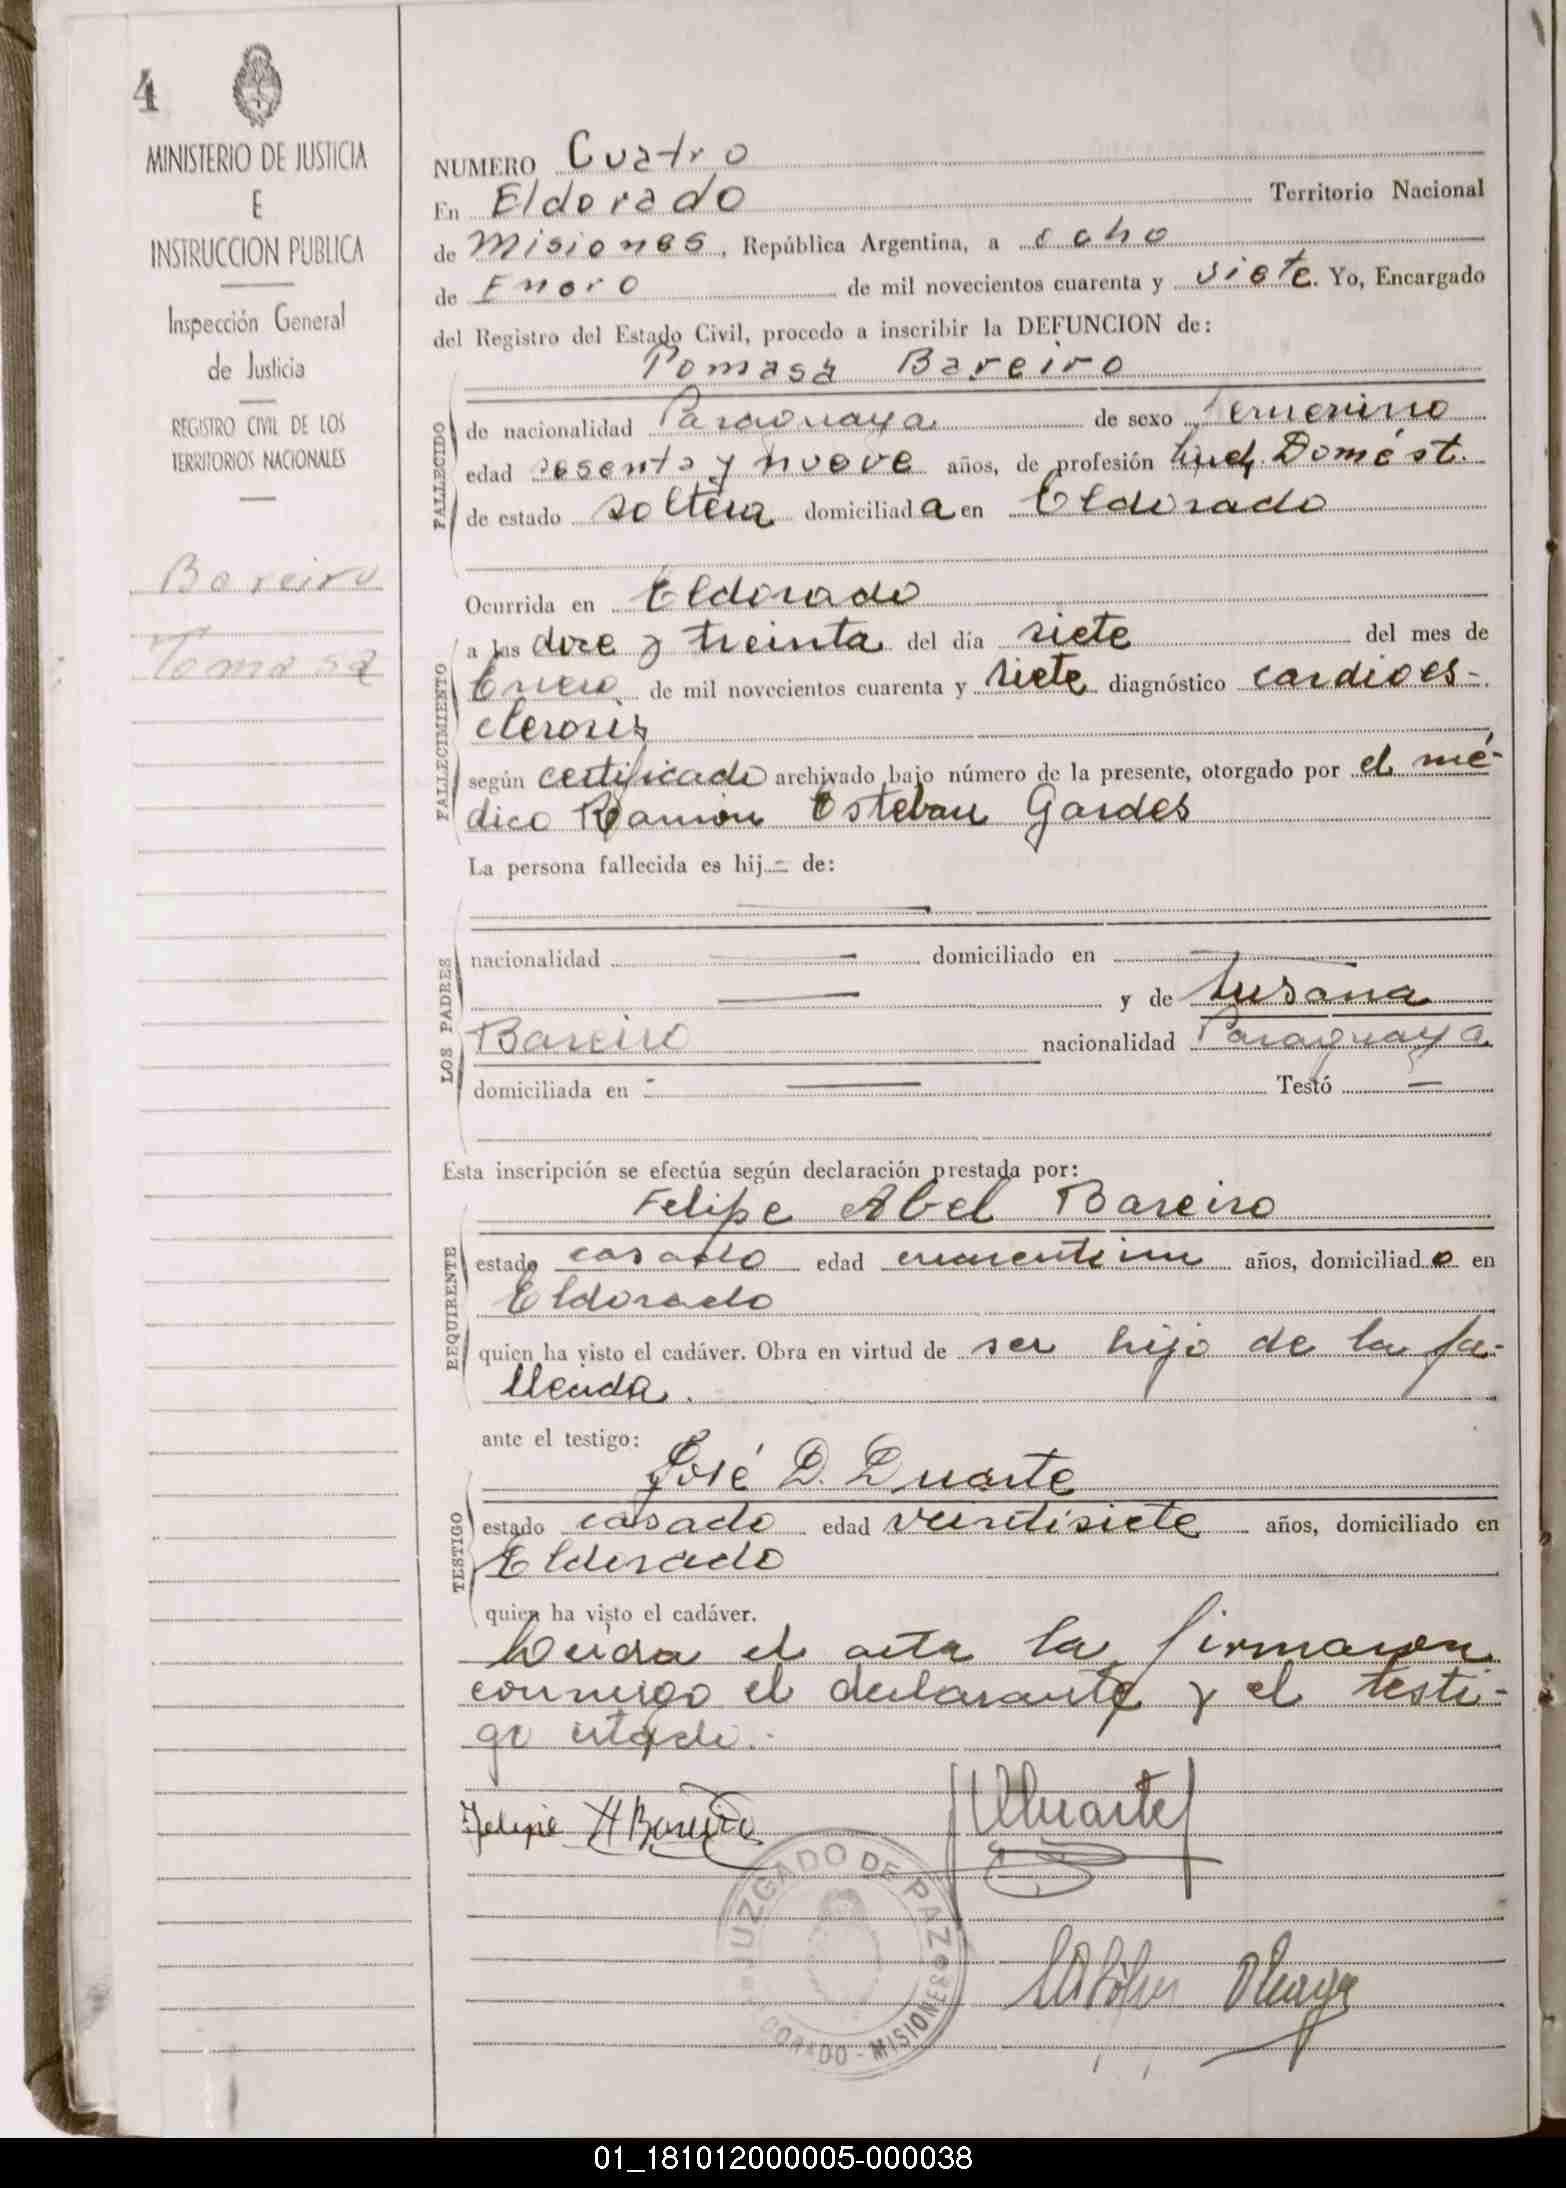 4
MINISTERIO DE JUSTICIA
E
INSTRUCCION PUBLICA
Inspección General
de Justicia
REGISTRO CIVIL DE LOS
TERRITORIOS NACIONALES
Bareiro
Tomasa
NUMERO Cuatro
En Eldorado Territorio Nacional
de Misiones, República Argentina, a ocho
de Enero de mil novecientos cuarenta y siete. Yo, Encargado
del Registro del Estado Civil, procedo a inscribir la DEFUNCION de:
Tomasa Bareiro
FALLECIDO
de nacionalidad Paraguaya de sexo femenino
edad sesenta y nueve años, de profesión Qued. Domést.
de estado soltera domiciliada en Eldorado
Ocurrida en Eldorado
FALLECIMIENTO
a las doce y treinta del día siete del mes de
Enero de mil novecientos cuarenta y siete diagnóstico cardioes-
clerosis
según certificado archivado bajo número de la presente, otorgado por el mé-
dico Ramón Esteban Gardes
La persona fallecida es hij= de:
LOS PADRES
nacionalidad — domiciliado en —
— y de Susana
Bareiro nacionalidad Paraguaya
domiciliada en — Testó —
Esta inscripción se efectúa según declaración prestada por:
Felipe Abel Bareiro
REQUIRENTE
estado casado edad cuarentiun años, domiciliado en
Eldorado
quien ha visto el cadáver. Obra en virtud de ser hijo de la fa-
llecida.
ante el testigo:
José D. Duarte
TESTIGO
estado casado edad veintisiete años, domiciliado en
Eldorado
quien ha visto el cadáver.
Leida el acta la firmaron
conmigo el declarante y el testi-
go citado.-
Felipe A Bareiro
JDuarte
JUZGADO DE PAZ
ELDORADO - MISIONES
01_181012000005-000038